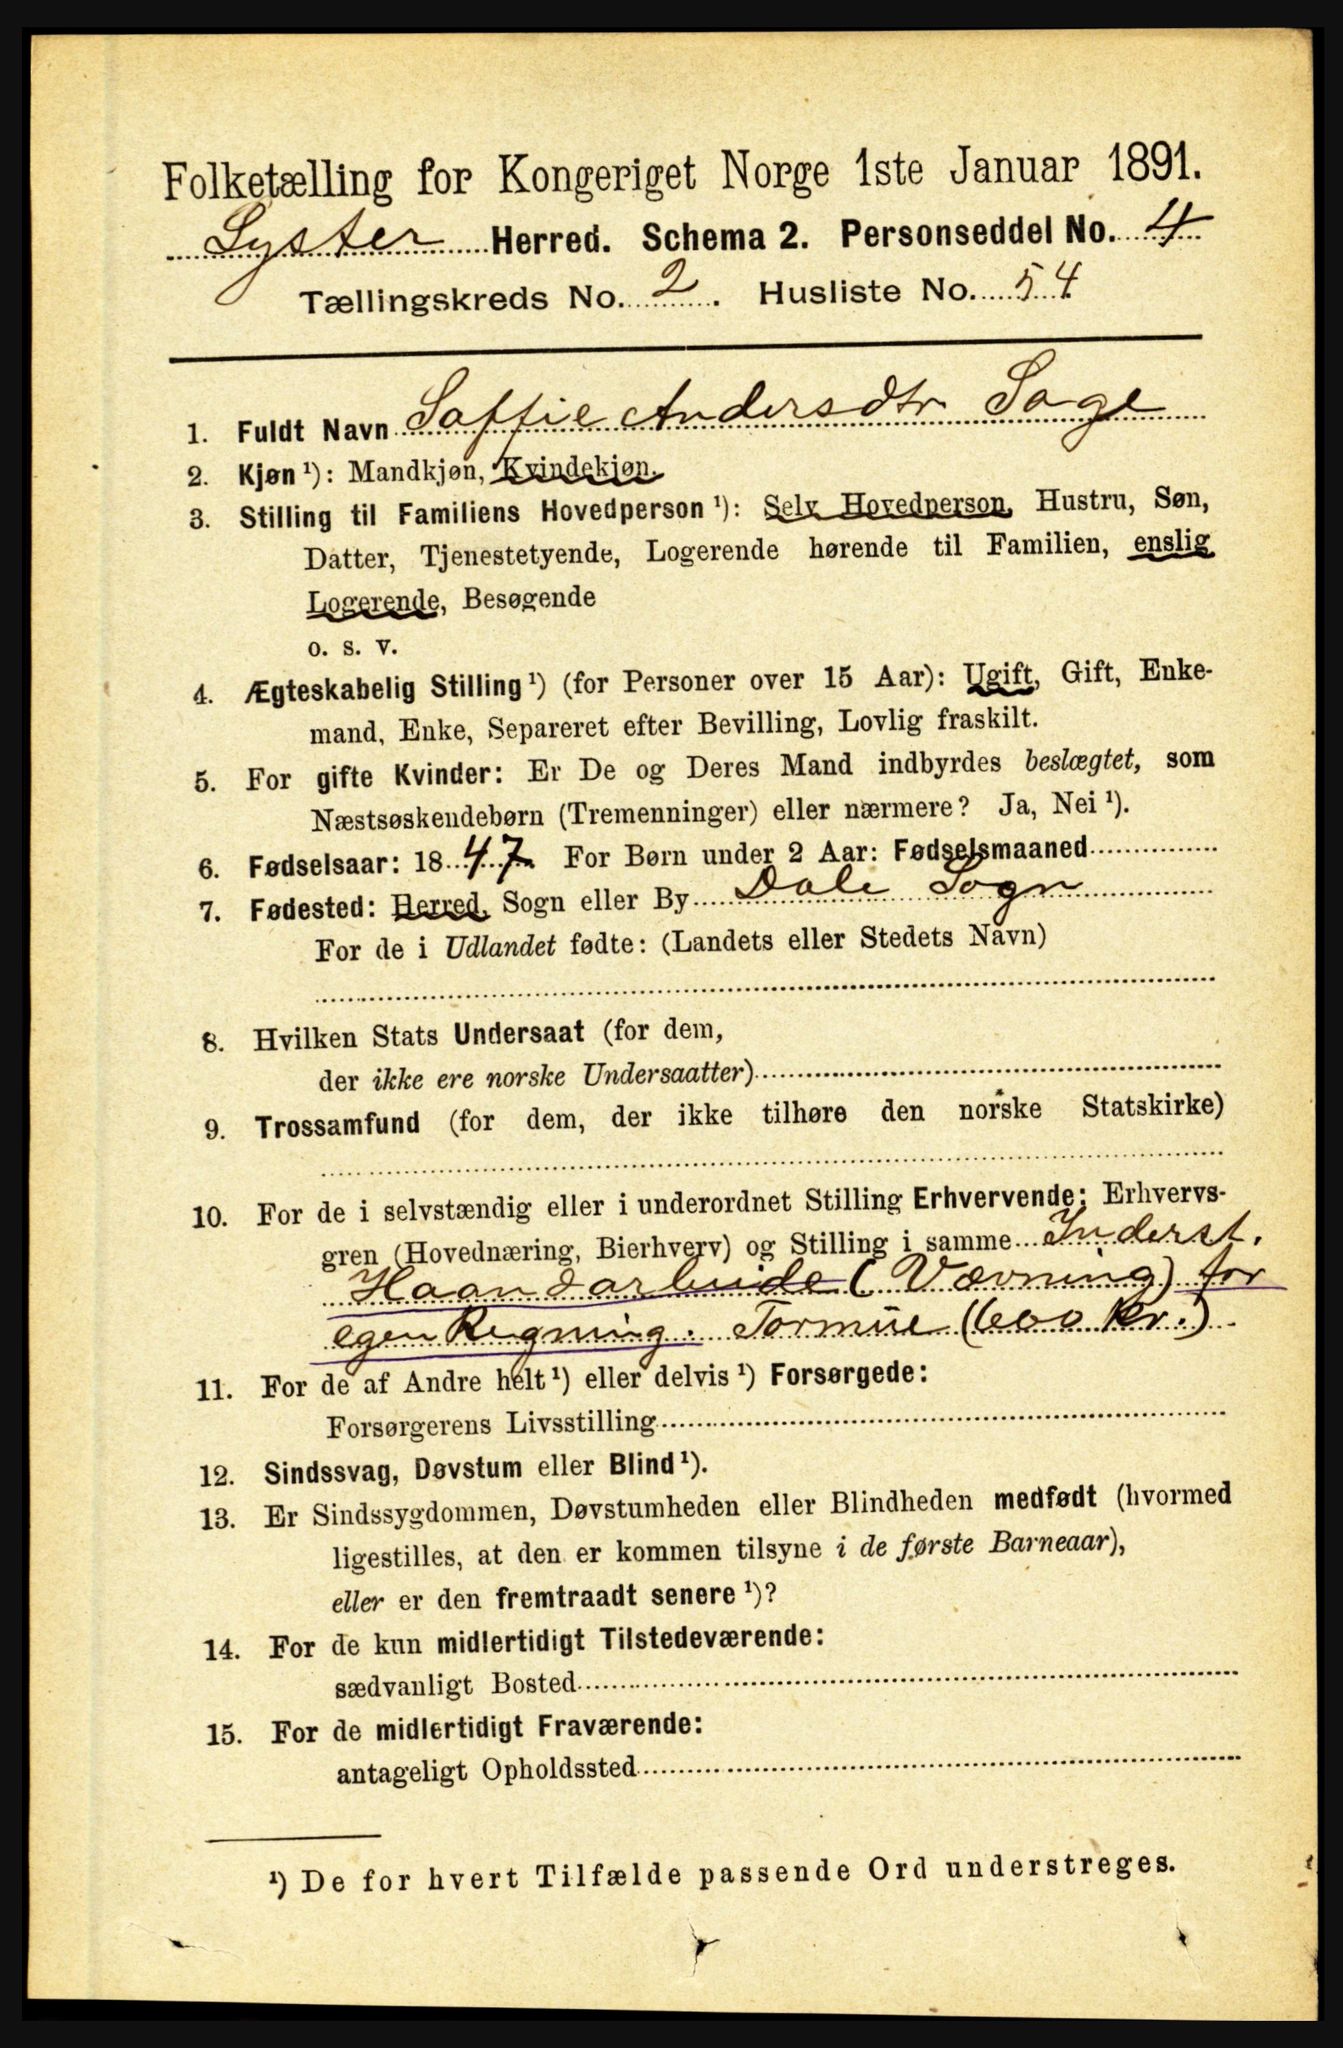 Folketælling for Kongeriget Norge 1ste Januar 1891.
Lyster Herred. Schema 2. Personseddel No. 4
Tællingskreds No. 2. Husliste No. 54
1. Fuldt Navn Soffie Andersdtr Soge
2. Kjøn ¹): Mandkjøn, Kvindekjøn.
3. Stilling til Familiens Hovedperson ¹): Selv Hovedperson, Hustru, Søn,
Datter, Tjenestetyende, Logerende hørende til Familien, enslig
Logerende, Besøgende
o. s. v.
4. Ægteskabelig Stilling ¹) (for Personer over 15 Aar): Ugift, Gift, Enke-
mand, Enke, Separeret efter Bevilling, Lovlig fraskilt.
5. For gifte Kvinder: Er De og Deres Mand indbyrdes beslægtet, som
Næstsøskendebørn (Tremenninger) eller nærmere? Ja, Nei ¹).
6. Fødselsaar: 1847 For Børn under 2 Aar: Fødselsmaaned
7. Fødested: Herred, Sogn eller By Dale Sogn
For de i Udlandet fødte: (Landets eller Stedets Navn)
8. Hvilken Stats Undersaat (for dem,
der ikke ere norske Undersaatter)
9. Trossamfund (for dem, der ikke tilhøre den norske Statskirke)
10. For de i selvstændig eller i underordnet Stilling Erhvervende: Erhvervs-
gren (Hovednæring, Bierhverv) og Stilling i samme Inderst.
Haandarbeide (Vævning) for
egen Regning. Formue (600 Kr.)
11. For de af Andre helt ¹) eller delvis ¹) Forsørgede:
Forsørgerens Livsstilling
12. Sindssvag, Døvstum eller Blind ¹).
13. Er Sindssygdommen, Døvstumheden eller Blindheden medfødt (hvormed
ligestilles, at den er kommen tilsyne i de første Barneaar),
eller er den fremtraadt senere ¹)?
14. For de kun midlertidigt Tilstedeværende:
sædvanligt Bosted
15. For de midlertidigt Fraværende:
antageligt Opholdssted
¹) De for hvert Tilfælde passende Ord understreges.